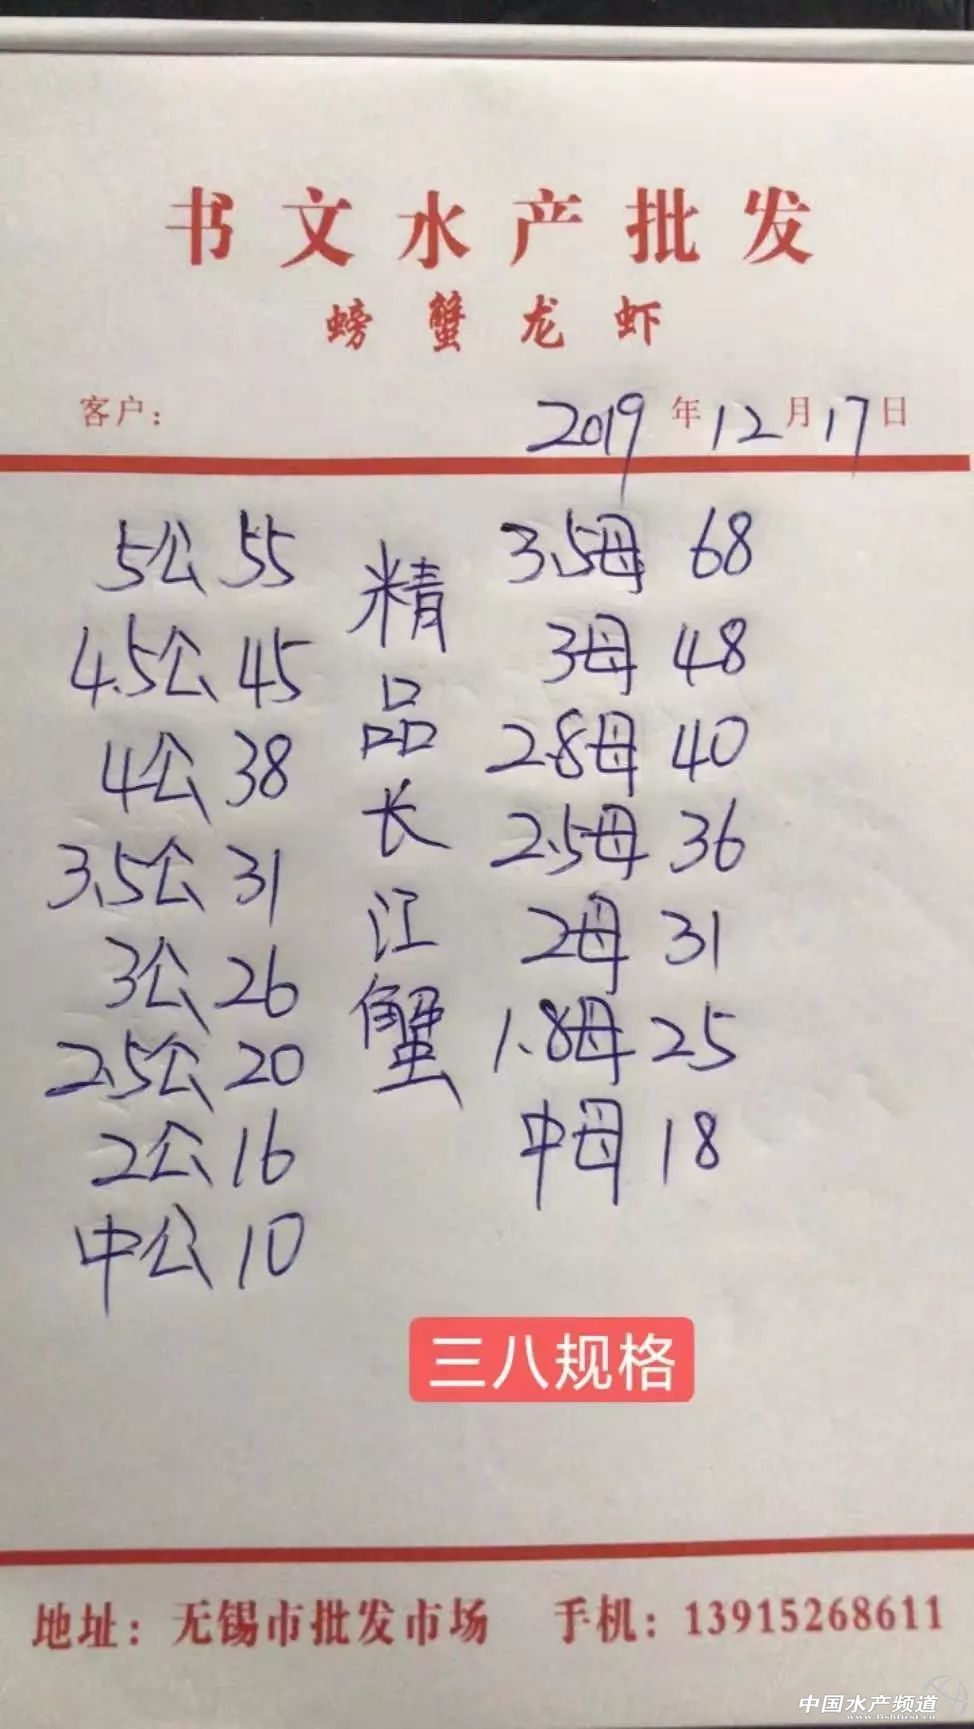 书文水产批发
螃蟹龙虾
客户： 2019年12月17日
5公 55
4.5公 45
4公 38
3.5公 31
3公 26
2.5公 20
2公 16
中公 10
精品长江蟹
3.5母 68
3母 48
2.8母 40
2.5母 36
2母 31
1.8母 25
中母 18
三八规格
地址：无锡市批发市场 手机：13915268611
中国水产频道
www.fishfirst.cn